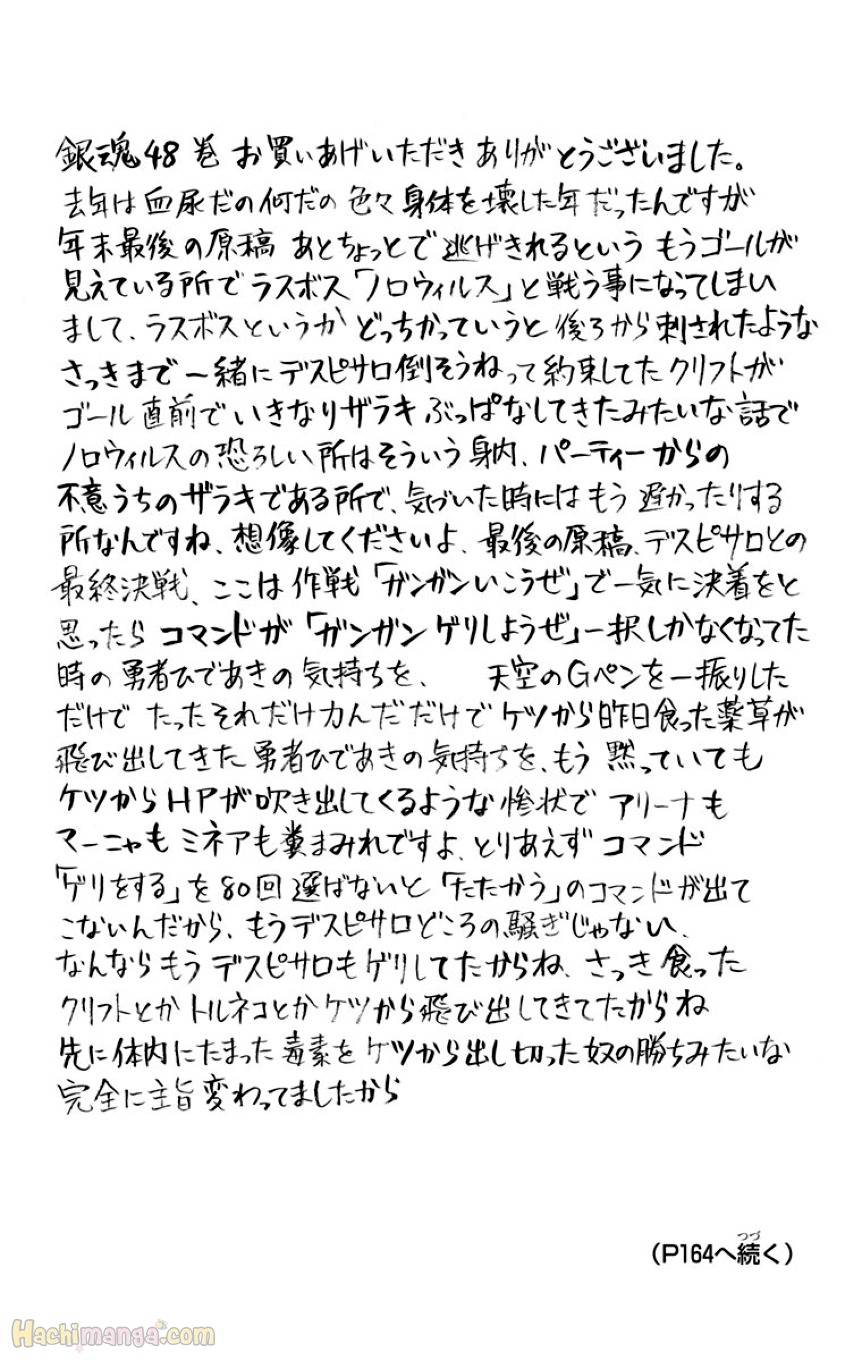 銀魂48巻 お買いあげいただき ありがとうございました。
去年は血尿だの何だの色々身体を壊した年だったんですが
年末最後の原稿 あとちょっとで逃げきれるという もうゴールが
見えている所で ラスボス「ノロウィルス」と戦う事になってしまい
まして、ラスボスというか どっちかっていうと 後ろから刺されたような
さっきまで一緒にデスピサロ倒そうねって約束してたクリフトが
ゴール直前でいきなりザラキぶっぱなしてきたみたいな話で
ノロウィルスの恐ろしい所はそういう身内、パーティーからの
不意うちのザラキである所で、気づいた時にはもう遅かったりする
所なんですね、想像してくださいよ、最後の原稿、デスピサロとの
最終決戦、ここは作戦「ガンガンいこうぜ」で一気に決着をと
思ったらコマンドが「ガンガンゲリしようぜ」一択しかなくなってた
時の勇者ひであきの気持ちを、 天空のGペンを一振りした
だけで たったそれだけ力んだだけで ケツから昨日食った薬草が
飛び出してきた勇者ひであきの気持ちを、もう黙っていても
ケツからHPが吹き出してくるような惨状で アリーナも
マーニャもミネアも糞まみれですよ、とりあえずコマンド
「ゲリをする」を80回選ばないと「たたかう」のコマンドが出て
こないんだから、もうデスピサロどころの騒ぎじゃない、
なんならもうデスピサロもゲリしてたからね、さっき食った
クリフトとかトルネコとかケツから飛び出してきてたからね
先に体内にたまった毒素をケツから出し切った奴の勝ちみたいな
完全に主旨変わってましたから
つづ
(P164へ続く)
Hachimanga.com